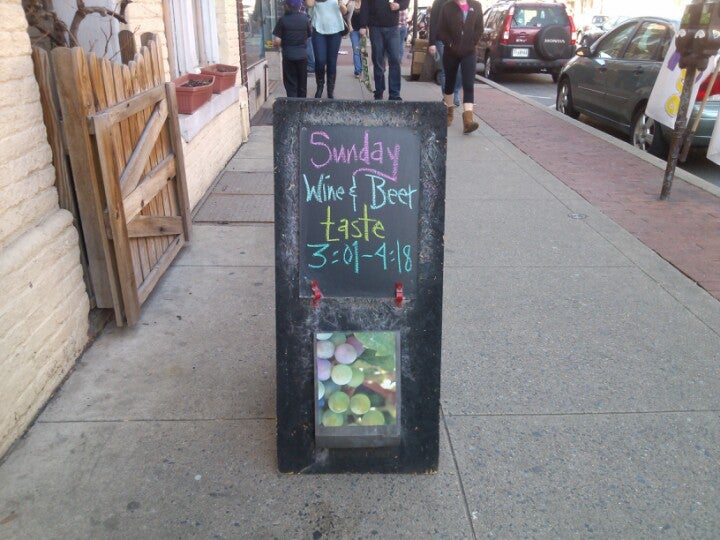 Sunday
Wine & Beer
taste
3:01-4:18
HONDA